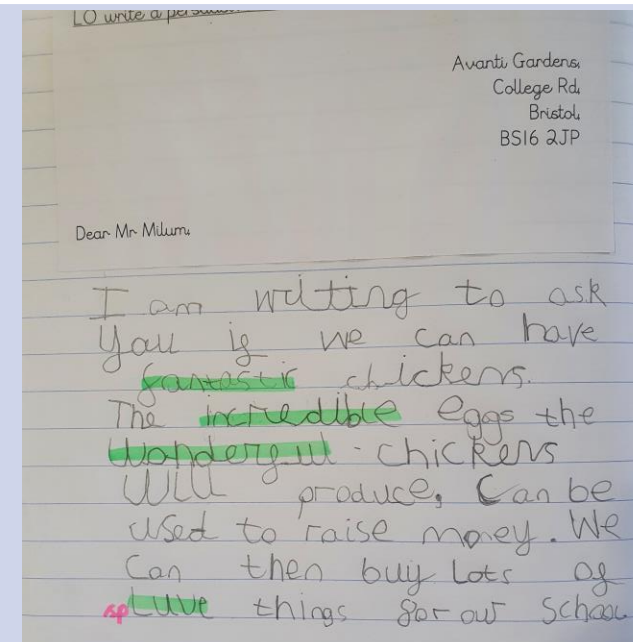 LO write a persua
Avanti Gardens,
College Rd,
Bristol,
BS16 2JP
Dear Mr Milum,
I am writting to ask
You if we can have
fantastic chickens.
The incredible eggs the
wonderful chickens
will produce, Can be
used to raise money. We
Can then buy Lots of
sp Luve things for our School